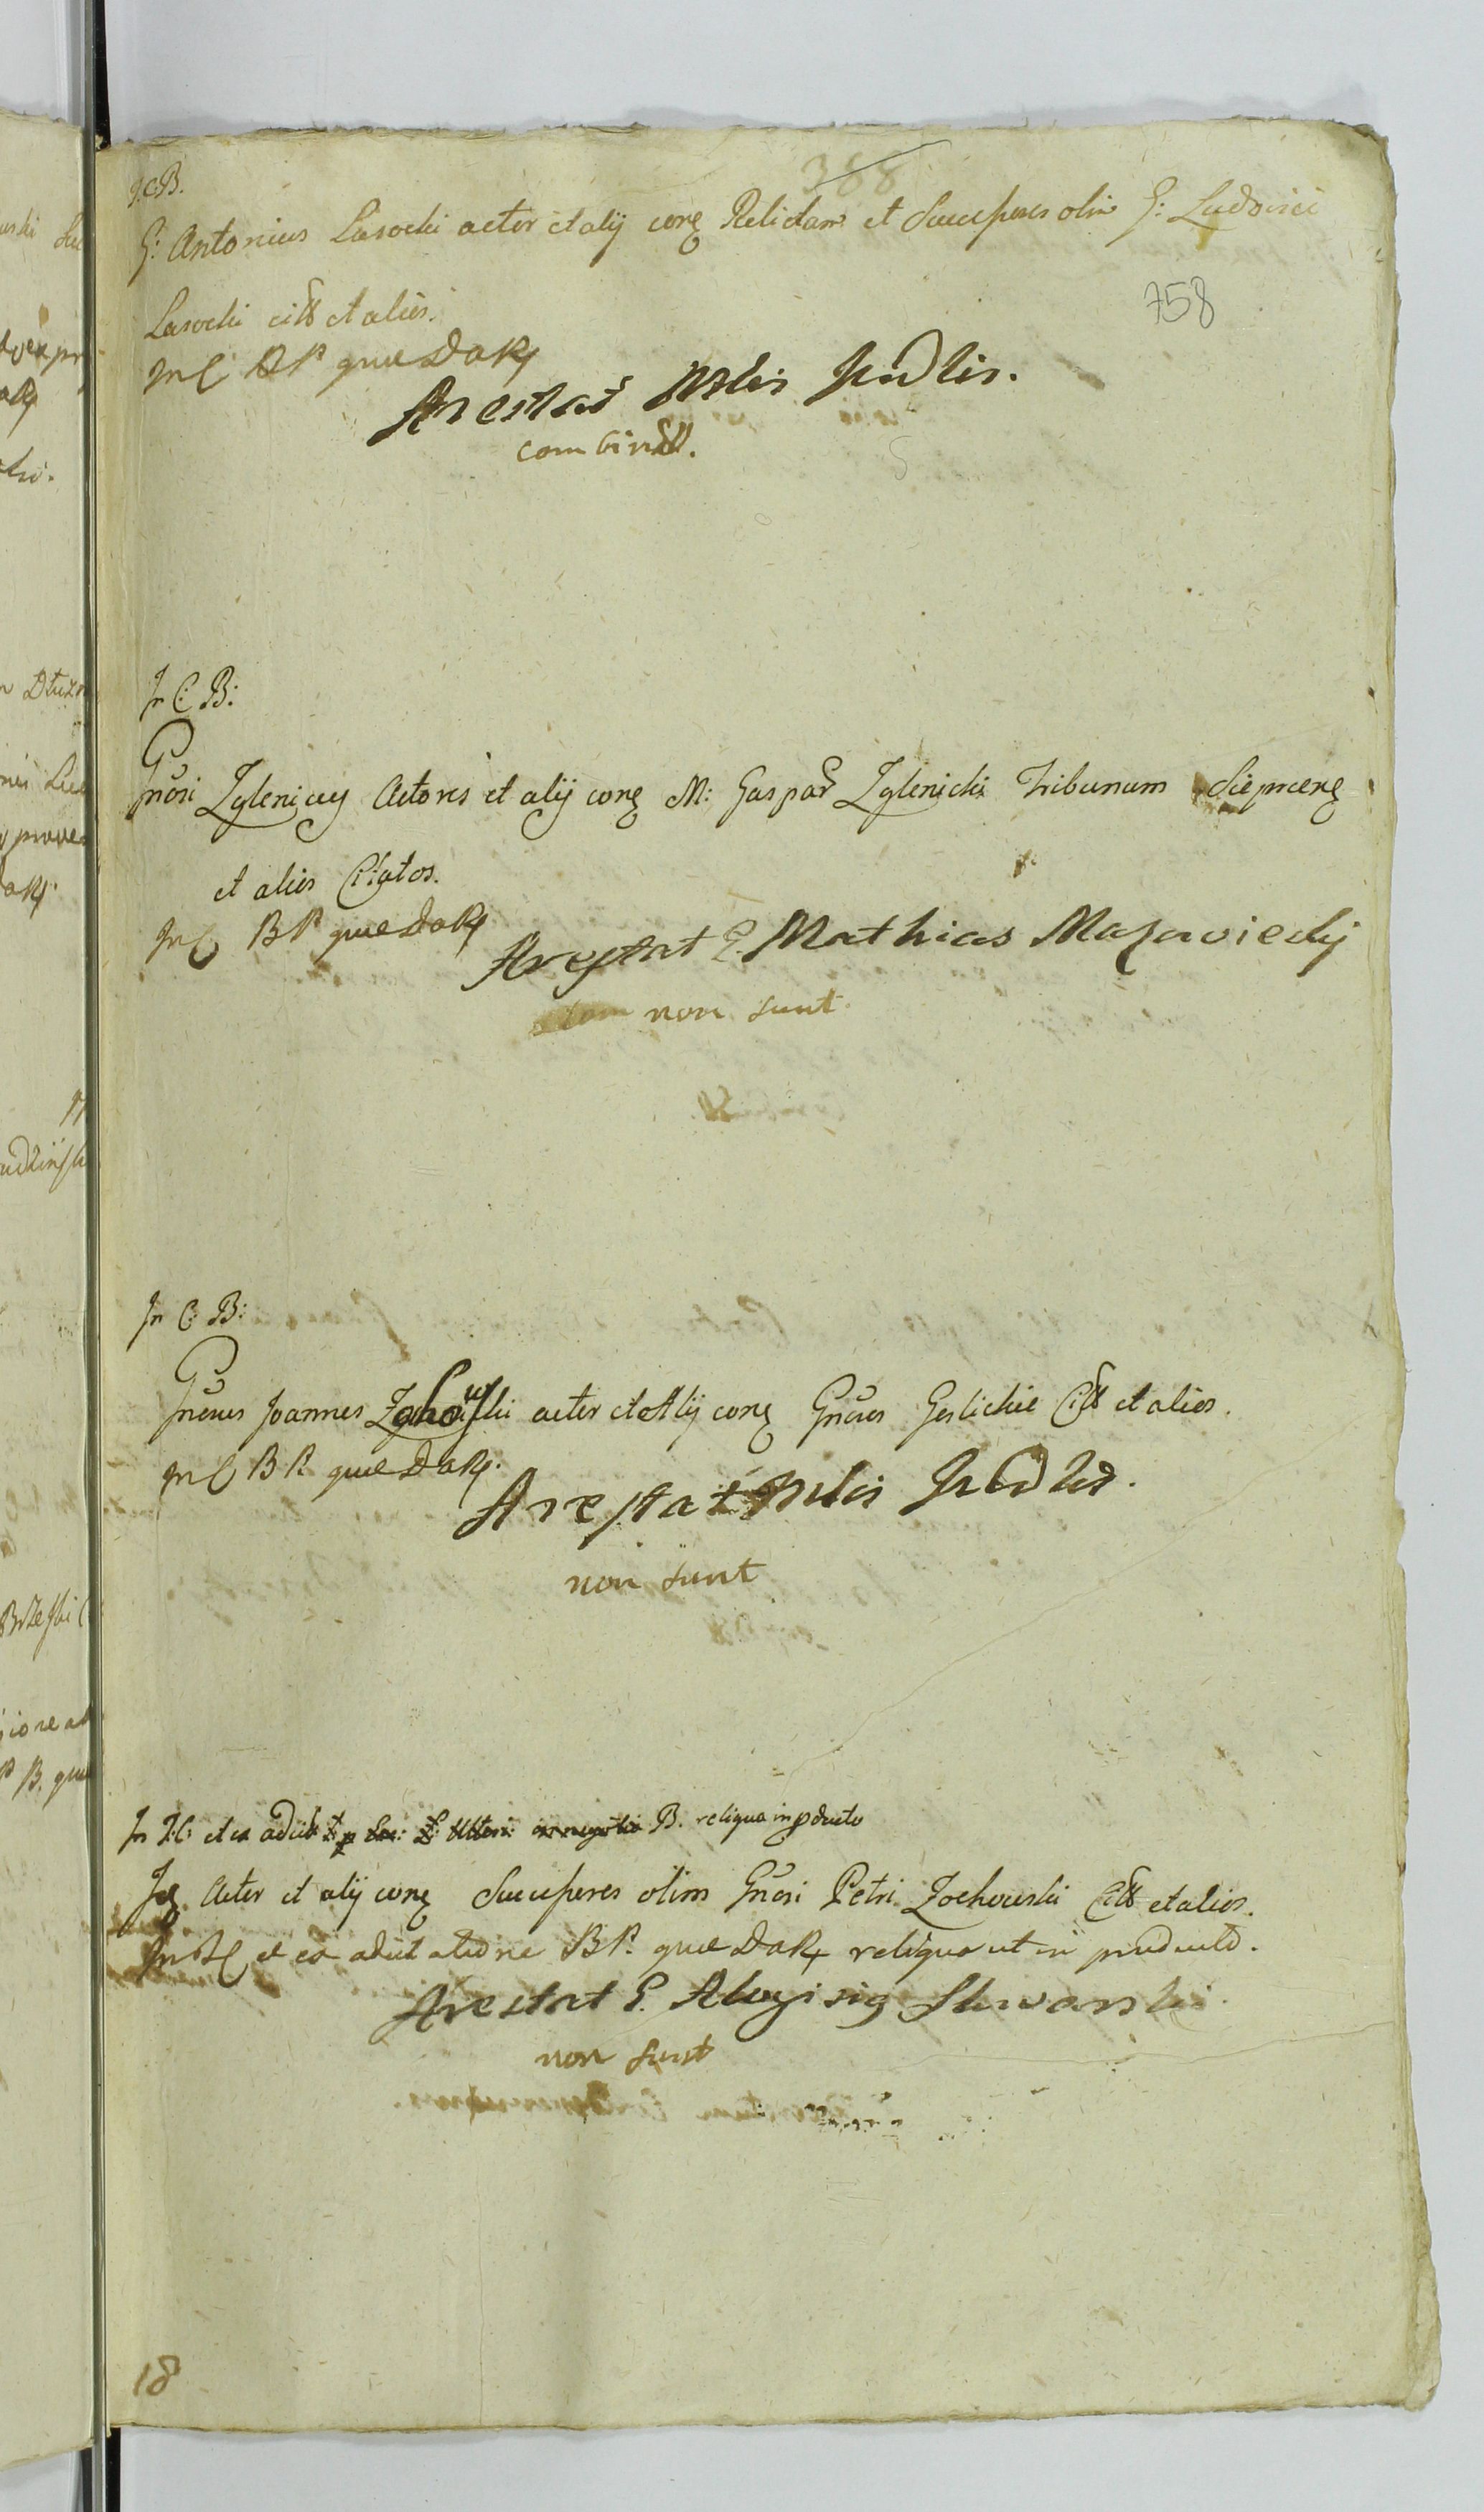 388
J.C.B.
G: Antonius Lasocki actor et alij conq Relictam et Successores olim G: Ludovici
758
Lasocki citt et alios.
In C BP quae DaRq
Arestat Nlis Judlis.
combind.
In C: B:
Gnosi Zgleniccy Actores et alij conq M: Gaspar Zglenicki Tribunum Sieprcenq
et alios Citatos.
In C BP quae DaRq
Arestat G. Mathias Mazowiecky
non sunt.
In C: B:
Gnosus Joannes actor et Alij conq Gnosos Goslickie Citt et alios.
In C BP. quae DaRq.
Arestat Nlis Judlis.
non sunt
In T.C. et ex B. reliqua in pducto
Jdq Actor et alij conq Successores olim Gnosi Petri Zochowski Citt et alios.
In TC et ex BP. quae DaRq reliqua ut in producto.
Arestat G. Aloyisiq
non sunt
18